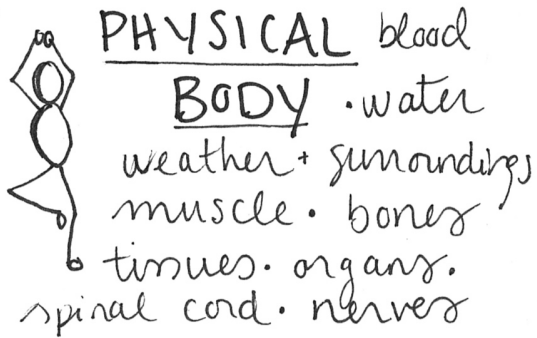 PHYSICAL blood
BODY · water
weather + surroundings
muscle · bones
tissues · organs ·
spinal cord · nerves